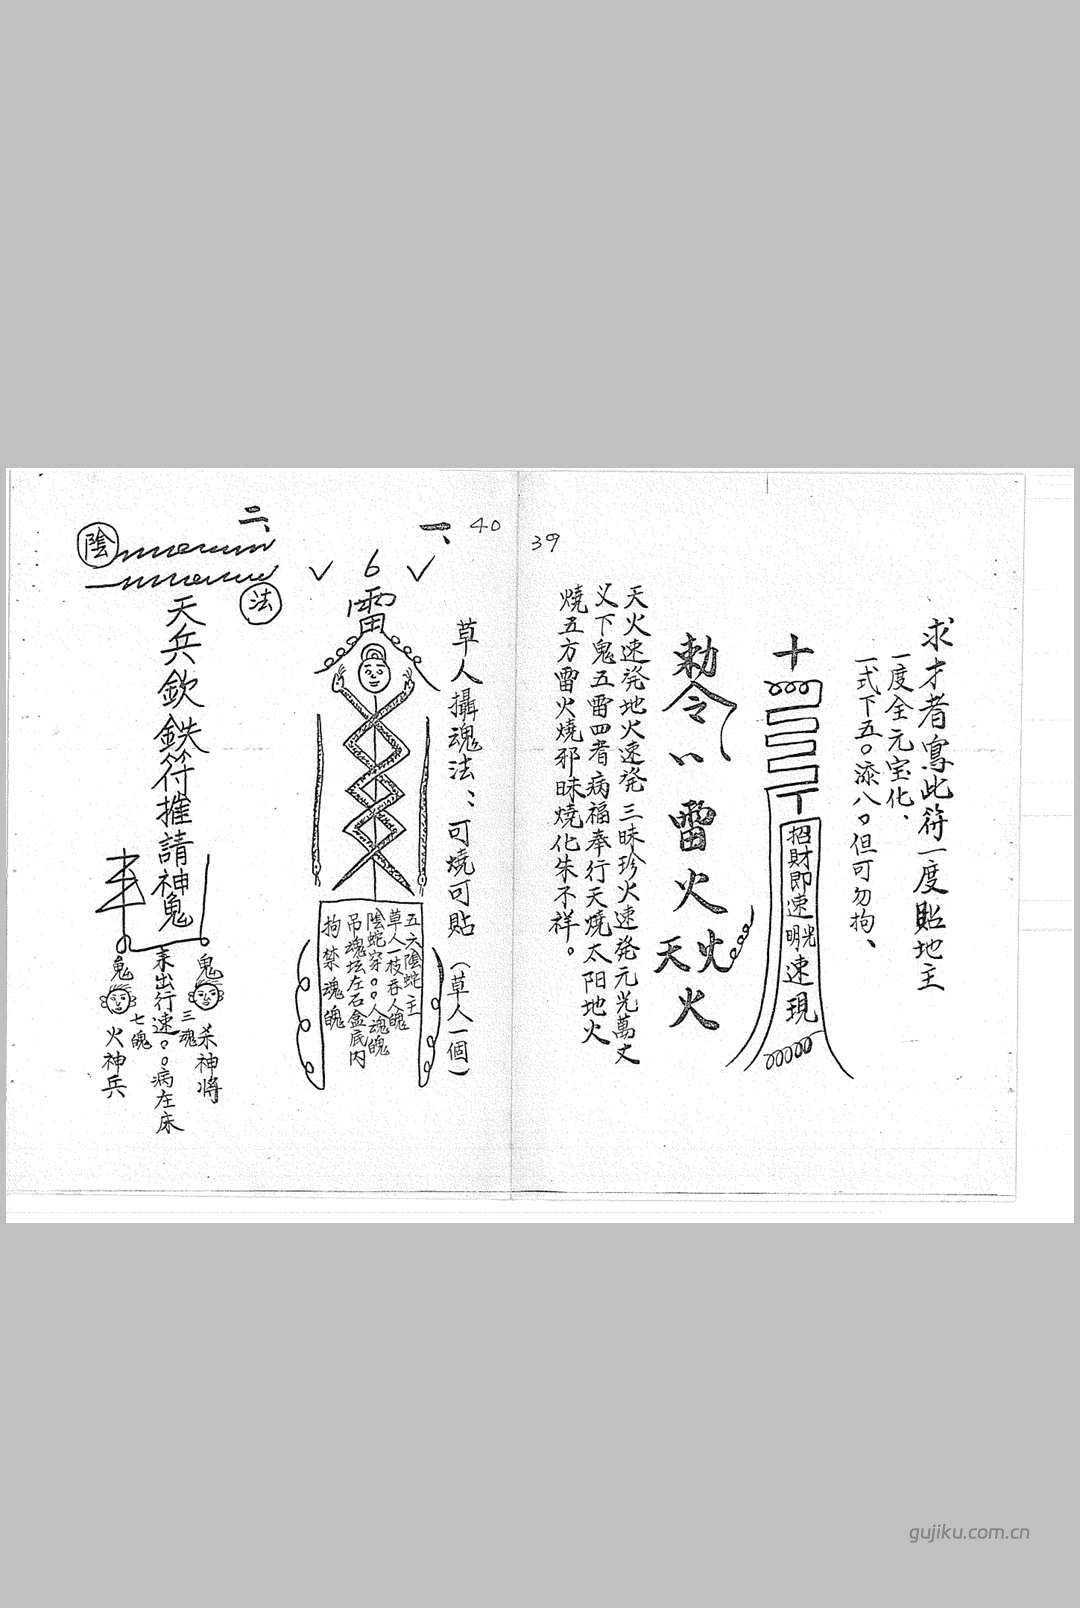 求才者寫此符一度貼地主
一度全元宝化、
一式下五〇添八〇但可勿拘、
十
招財即速明光速現
勅令八雷火
天火
火
天火速発地火速発三昧珍火速発元光萬丈
义下鬼五雷四者病福奉行天燒太阳地火
燒五方雷火燒邪昧燒化朱不祥。
39
40
一、
草人攝魂法：可燒可貼（草人一個）
6
雷
五六陰蛇主
草人一枝吞人魄
陰蛇穿〇〇人魂魄
吊魂坛左石盒底内
拘禁魂魄
二、
陰
法
天兵欽鉄符推請神鬼
鬼
三魂
杀神将
出行速〇〇病在床
鬼
七魄
火神兵
gujiku.com.cn